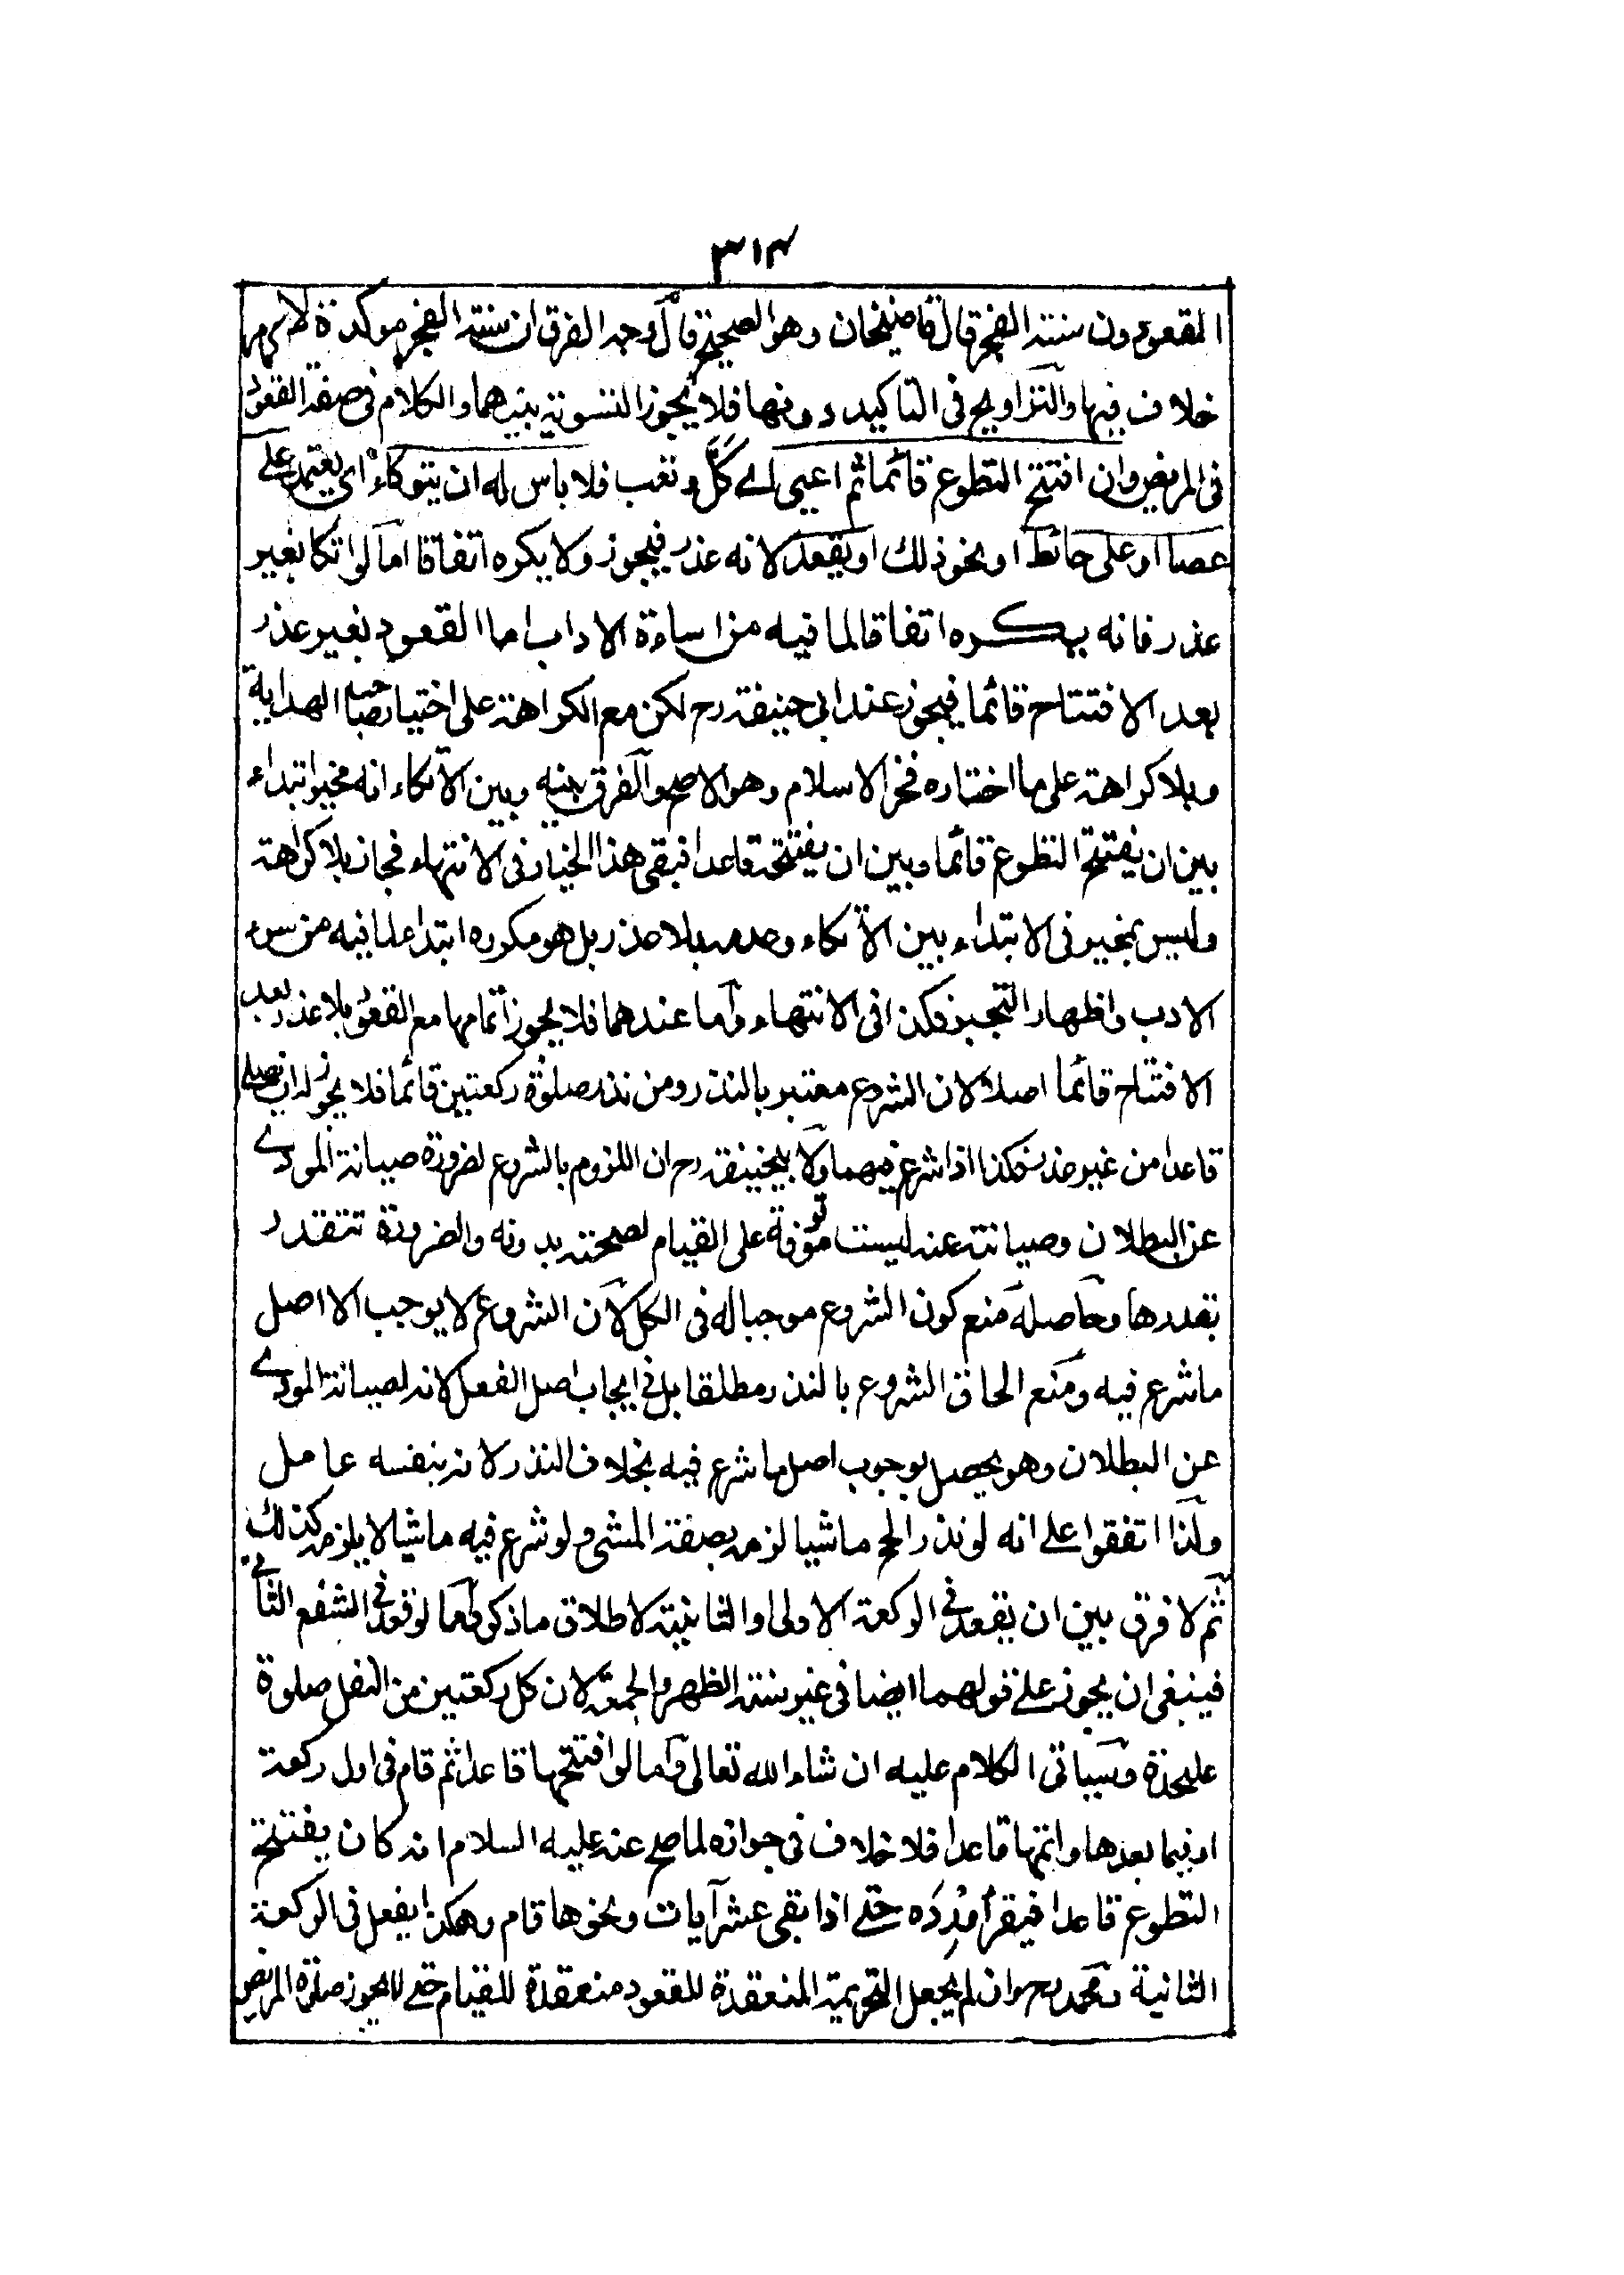 ٣١٤
القعود دون سنة الفجر قال قاضيخان وهو الصحيح قال وجه الفرق ان سنة الفجر موكدة لا
خلاف فيها والتراويح في التاكيد دونها فلا يجوز التسوية بينهما والكلام في صفة القعود
في المريض وان افتتح التطوع قائما ثم اعيى اے كلّ وتعب فلا باس له ان يتوكاء اى يعتمد على
عصا او على حائط او نحو ذلك او يقعد لانه عذر فيجوز ولا يكره اتفاقا اما لو اتكا بغير
عذر فانه يكره اتفاقا لما فيه من اساءة الاداب اما القعود بغير عذر
بعد الافتتاح قائما فيجوز عند ابى حنيفة رح لكن مع الكراهة على اختيار صاحب الهداية
وبلا كراهة على ما اختاره فخر الاسلام وهو الاصح والفرق بينه وبين الاتكاء انه مخير ابتداء
بين ان يفتتح التطوع قائما وبين ان يفتتحه قاعدا فبقى هذا الخيار فى الانتهاء فجاز بلا كراهة
وليس بمخير فى الابتداء بين الاتكاء وعدمه بلا عذر بل هو مكروه ابتداء لما فيه من سوء
الادب واظهار التجبر فكذا فى الانتهاء واما عندهما فلا يجوز اتمامها مع القعود بلا عذر بعد
الافتتاح قائما اصلا لان الشروع معتبر بالنذر ومن نذر صلوة ركعتين قائما فلا يجوز له ان يصلے
قاعدا من غير عذر فكذا اذا شرع فيهما ولابيحنيفة رح ان اللزوم بالشروع لضرورة صيانة المودے
عن البطلان وصيانته عنه ليست موقوفة على القيام لصحته بدونه والضرورة تتقدر
بقدرها وحاصله منع كون الشروع موجبا له فى الكل لان الشروع لا يوجب الا اصل
ما شرع فيه ومنع الحاق الشروع بالنذر مطلقا بل فى ايجاب اصل الفعل لانه لصيانة المودے
عن البطلان وهو يحصل بوجوب اصل ما شرع فيه بخلاف النذر لانه بنفسه عامل
ولذا اتفقوا على انه لو نذر الحج ماشيا لزمه بصفة المشى ولو شرع فيه ماشيا لا يلزمه كذلك
ثم لا فرق بين ان يقعد فى الركعة الاولى او الثانية لاطلاق ما ذكر اما لو قعد فى الشفع الثانے
فينبغى ان يجوز علے قولهما ايضا فى غير سنة الظهر والجمعة لان كل ركعتين من النفل صلوة
عليحدة وسياتى الكلام عليه ان شاء الله تعالى واما لو افتتحها قاعدا ثم قام فى اول ركعة
او فيما بعدها واتمها قاعدا فلا خلاف فى جوازه لما صح عنه عليه السلام انه كان يفتتح
التطوع قاعدا فيقرأ وِرْدَه حتے اذا بقى عشر آيات ونحوها قام وهكذا يفعل فى الركعة
الثانية ومحمد رح وان لم يجعل التحريمة المنعقدة للقعود منعقدة للقيام حتے لا يجوز صلوة المريض